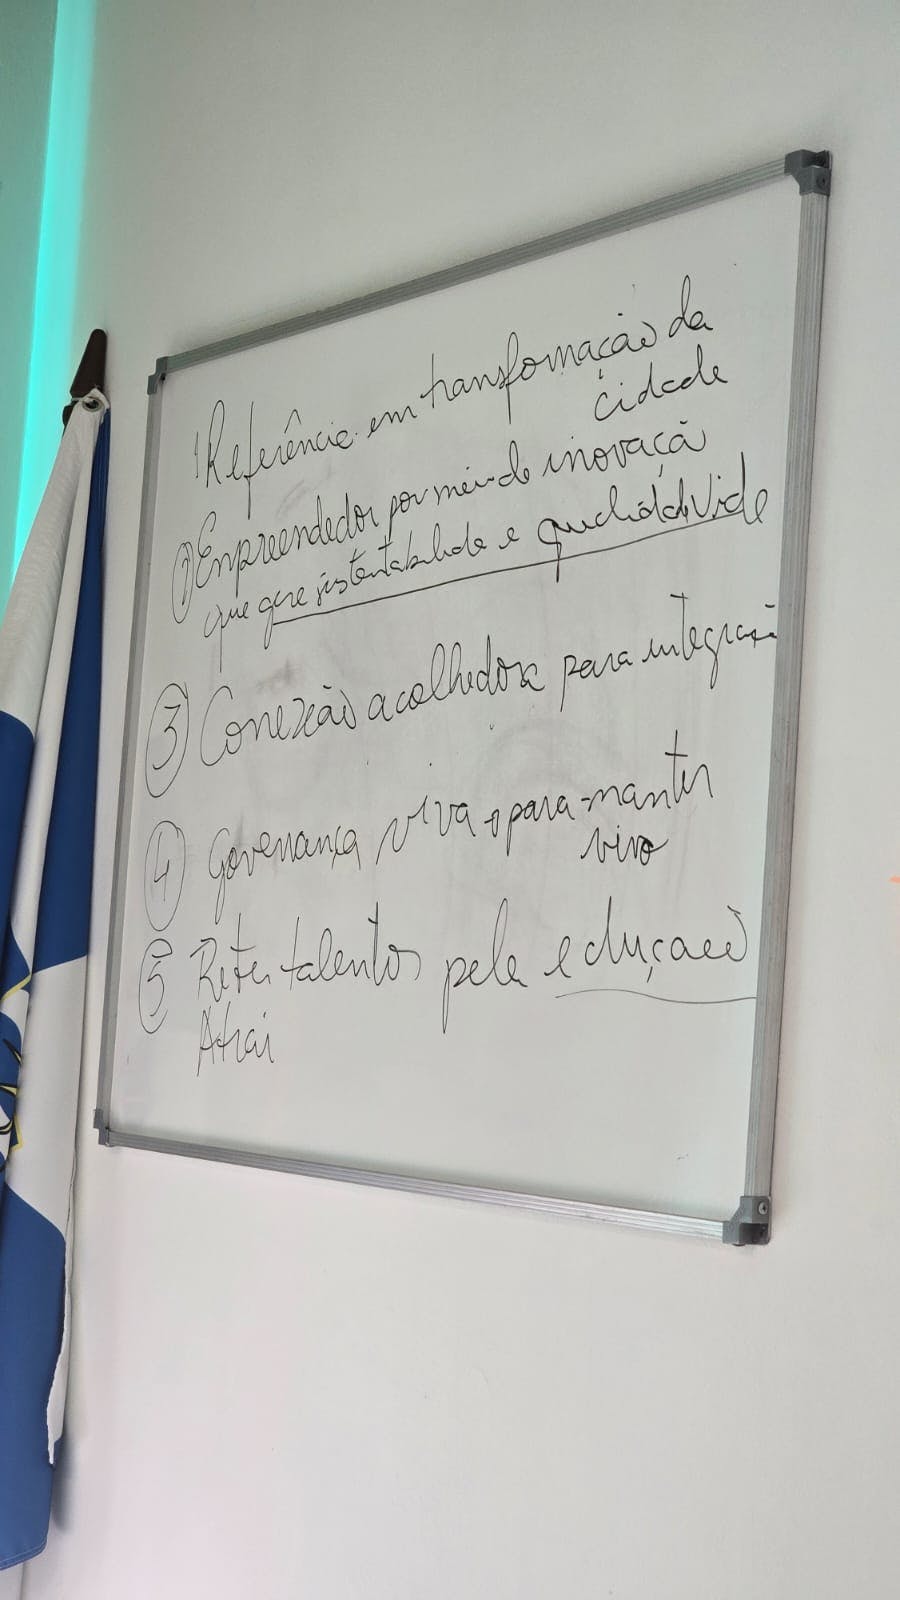 Referência em transformação da
cidade
① Empreendedor por meio de inovaçã
que gere sustentabilidade e qualidade Vida
③ Conexão acolhedora para integração
④ Governança viva para manter
vivo
⑤ Reter talentos pela educação
Atrai